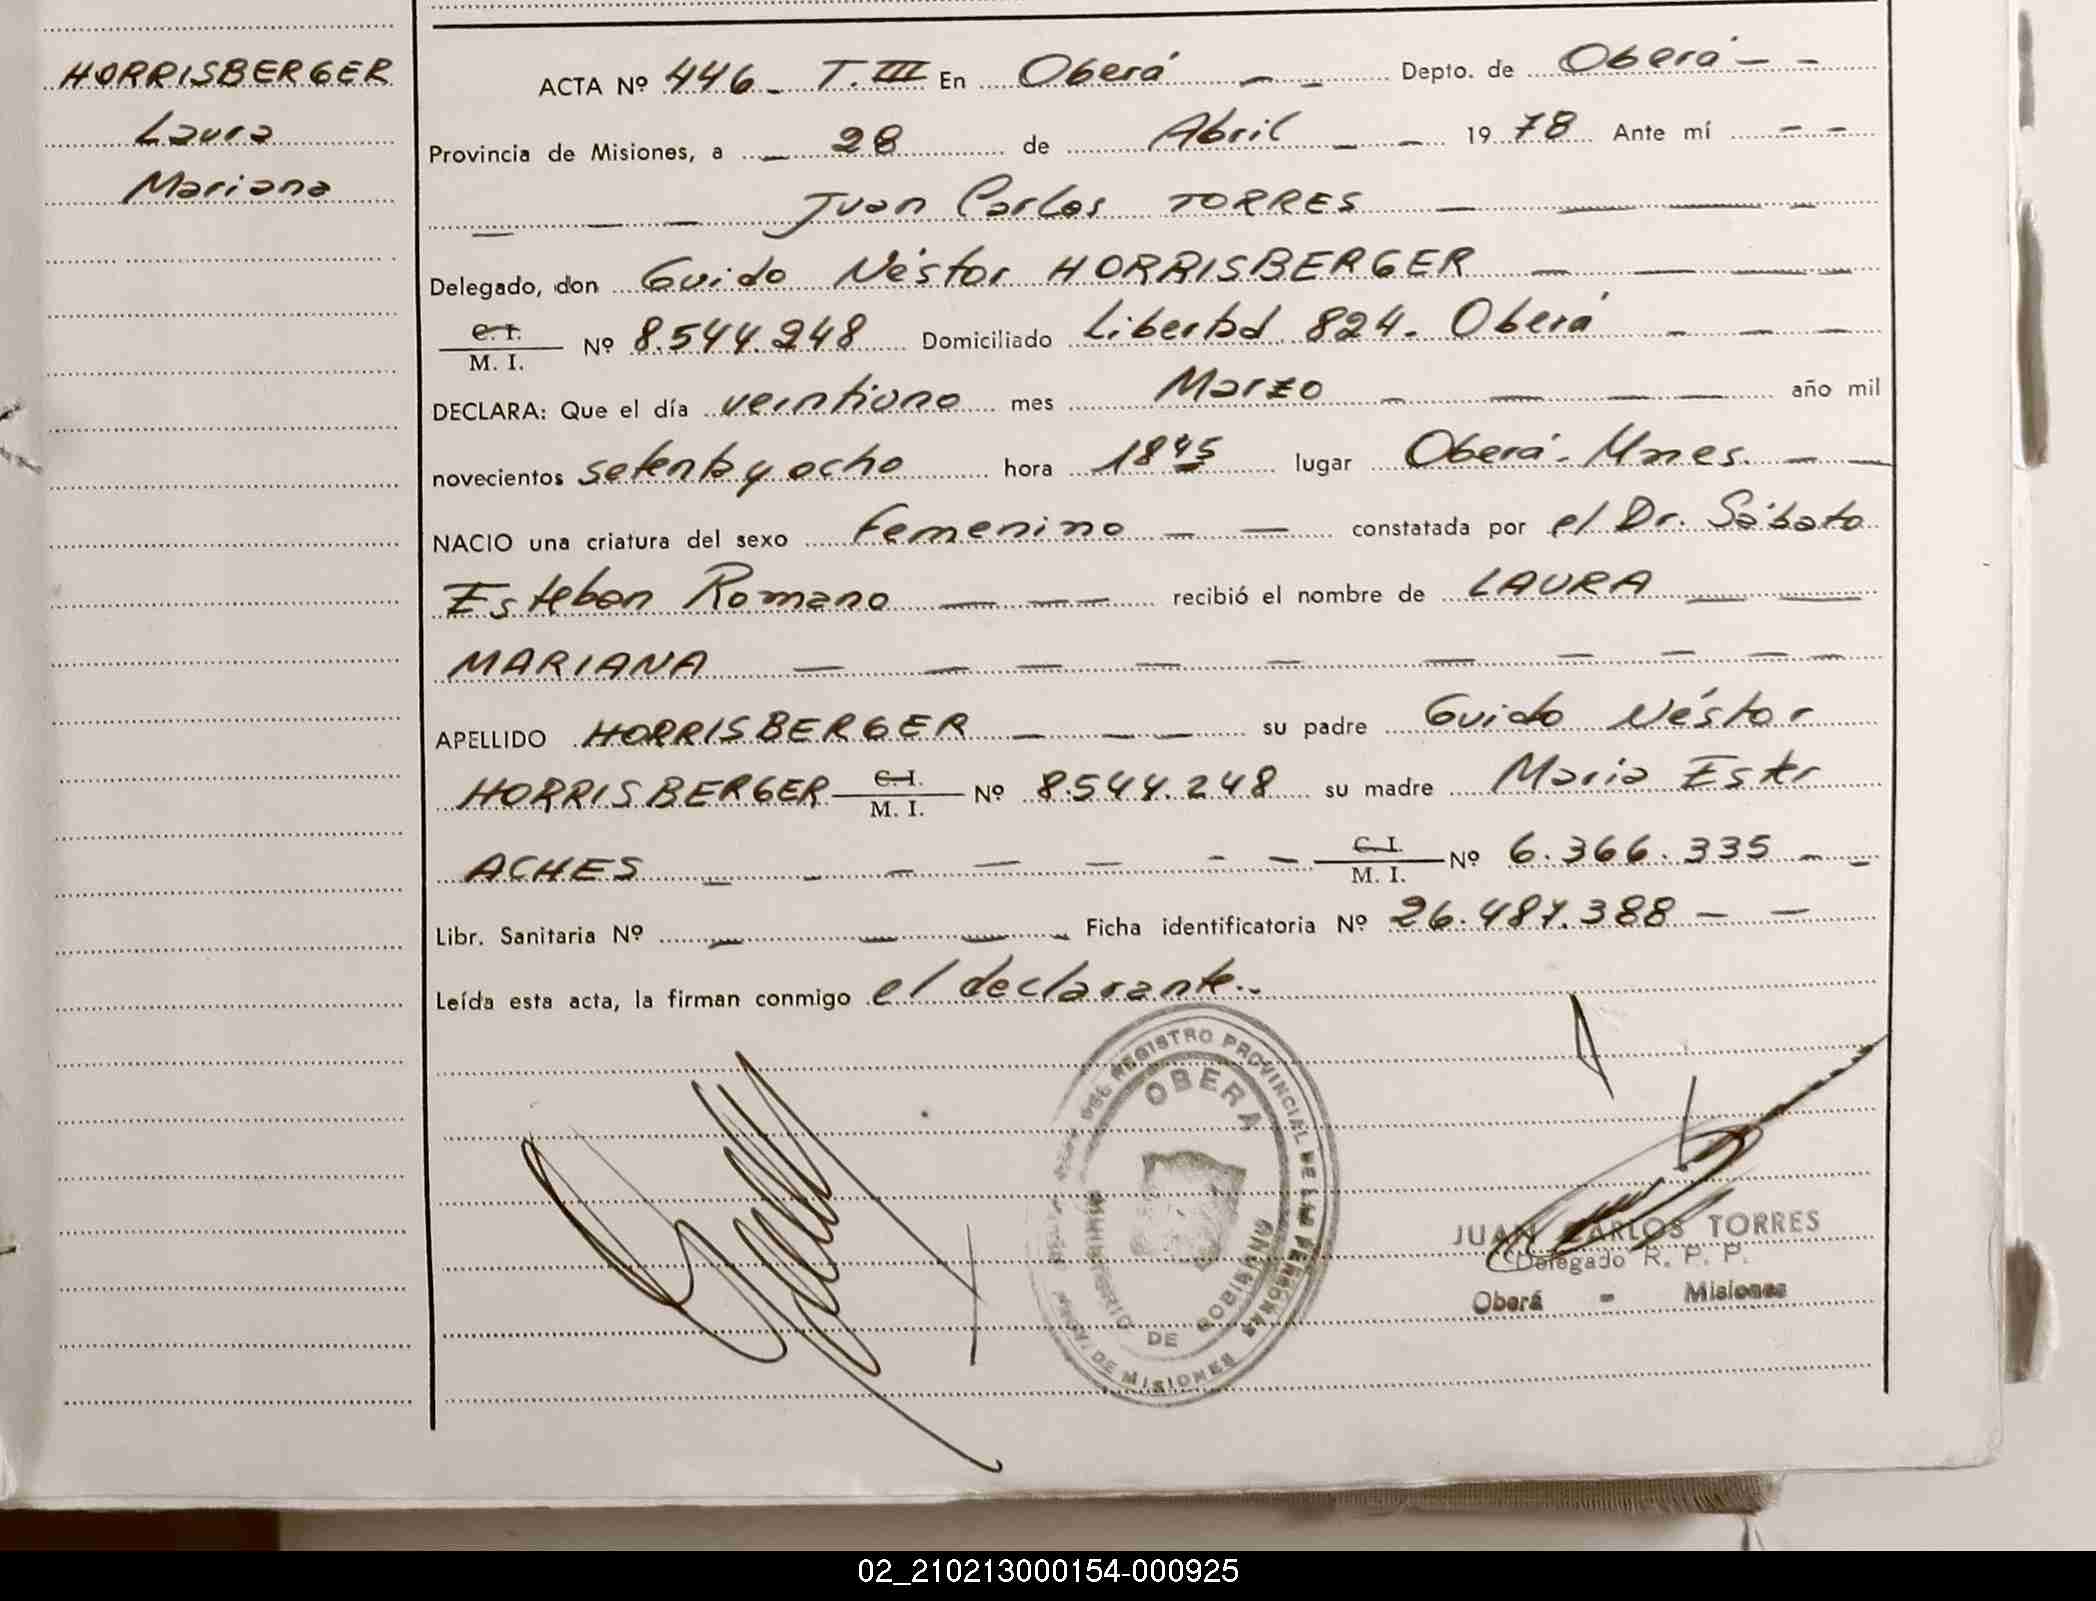 HORRISBERGER
Laura
Mariana
ACTA Nº 446 - T. III En Oberá - - Depto. de Oberá - -
Provincia de Misiones, a - 28 de Abril - - 1978 Ante mí - -
- - - Juan Carlos TORRES - - - -
Delegado, don Guido Néstor HORRISBERGER - - -
C. I.
M. I. Nº 8.544.248 Domiciliado Libertad 824. Oberá - - -
DECLARA: Que el día veintiuno mes Marzo - - - - año mil
novecientos setenta y ocho hora 18 45 lugar Oberá. Mnes. - -
NACIO una criatura del sexo Femenino - - constatada por el Dr. Sábato
Esteban Romano - - - recibió el nombre de LAURA - -
MARIANA - - - - - - - - - -
APELLIDO HORRISBERGER - - - su padre Guido Néstor
HORRISBERGER C. I. M. I. Nº 8.544.248 su madre Maria Ester
ACHES - - - - - - - C. I. M. I. Nº 6.366.335 - -
Libr. Sanitaria Nº - - - - Ficha identificatoria Nº 26.487.388 - -
Leída esta acta, la firman conmigo el declarante.-
DEL REGISTRO PROVINCIAL DE LAS PERSONAS
OBERA
MINISTERIO DE GOBIERNO
PROV. DE MISIONES
JUAN CARLOS TORRES
Delegado R. P. P.
Oberá - Misiones
02_210213000154-000925